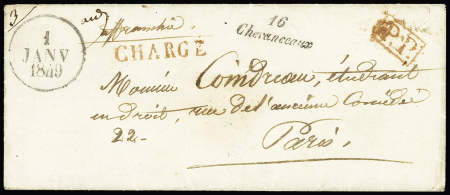 3
1
JANV
1849
affranchie
16
Chevanceaux
P.P.
CHARGÉ
Monsieur Coindreau, étudiant
en droit, rue de l'ancienne Comédie
22-
Paris.